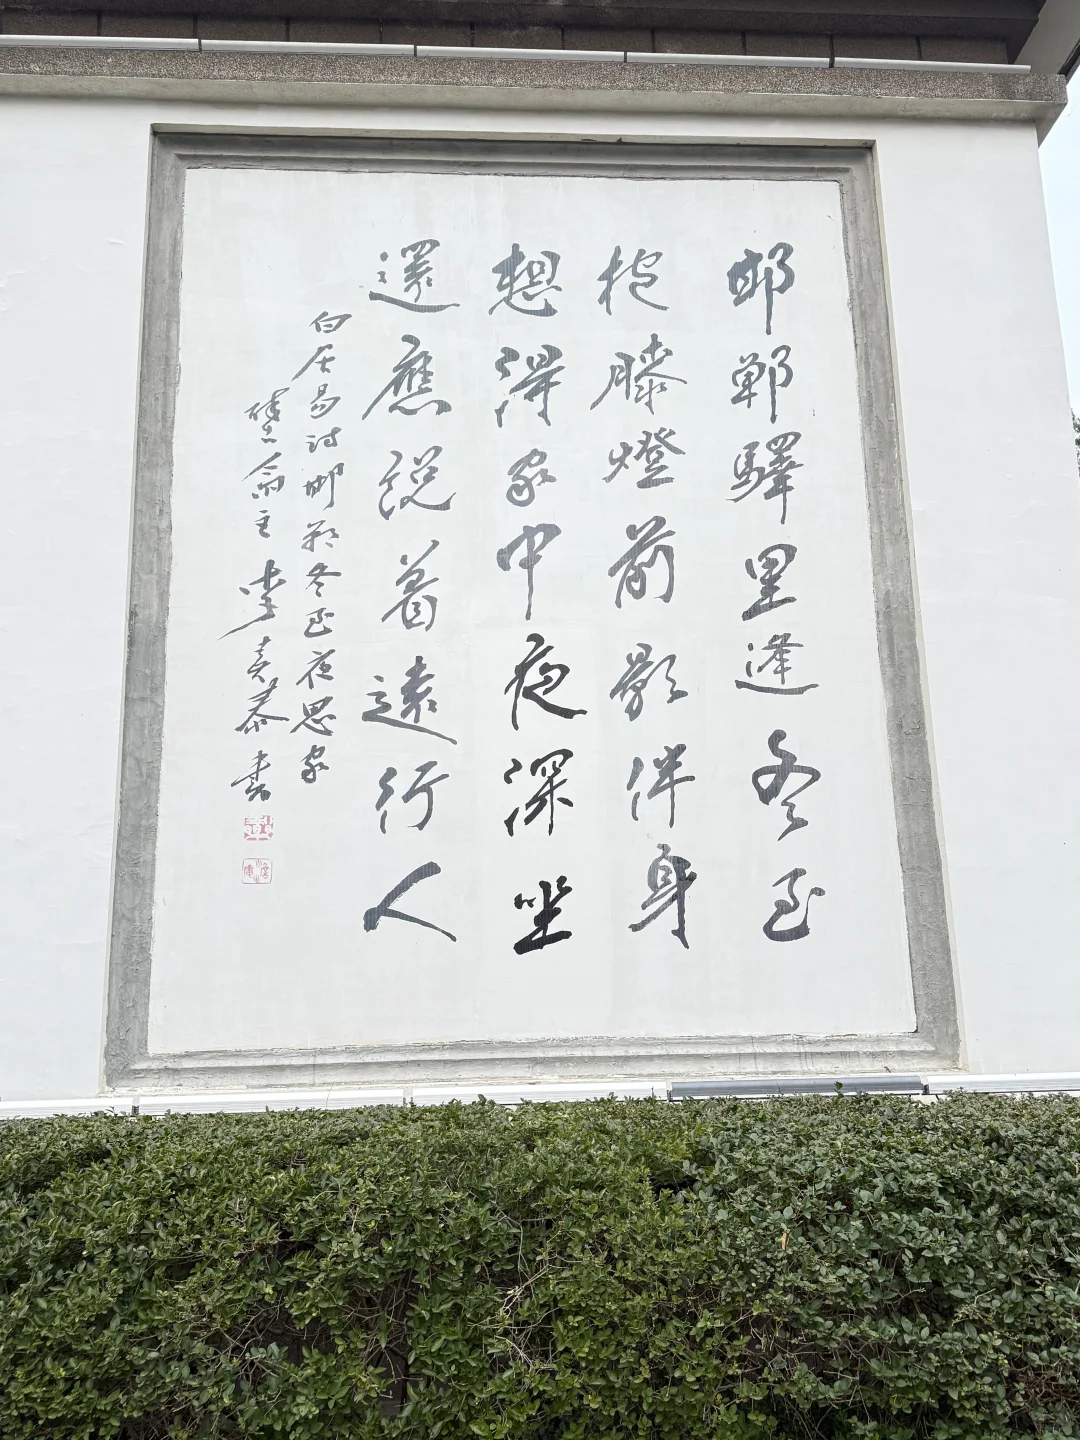 邯鄲驛里逢冬至
抱膝燈前影伴身
想得家中夜深坐
還應説着遠行人
白居易詩邯鄲冬至夜思家
主李奕泰書